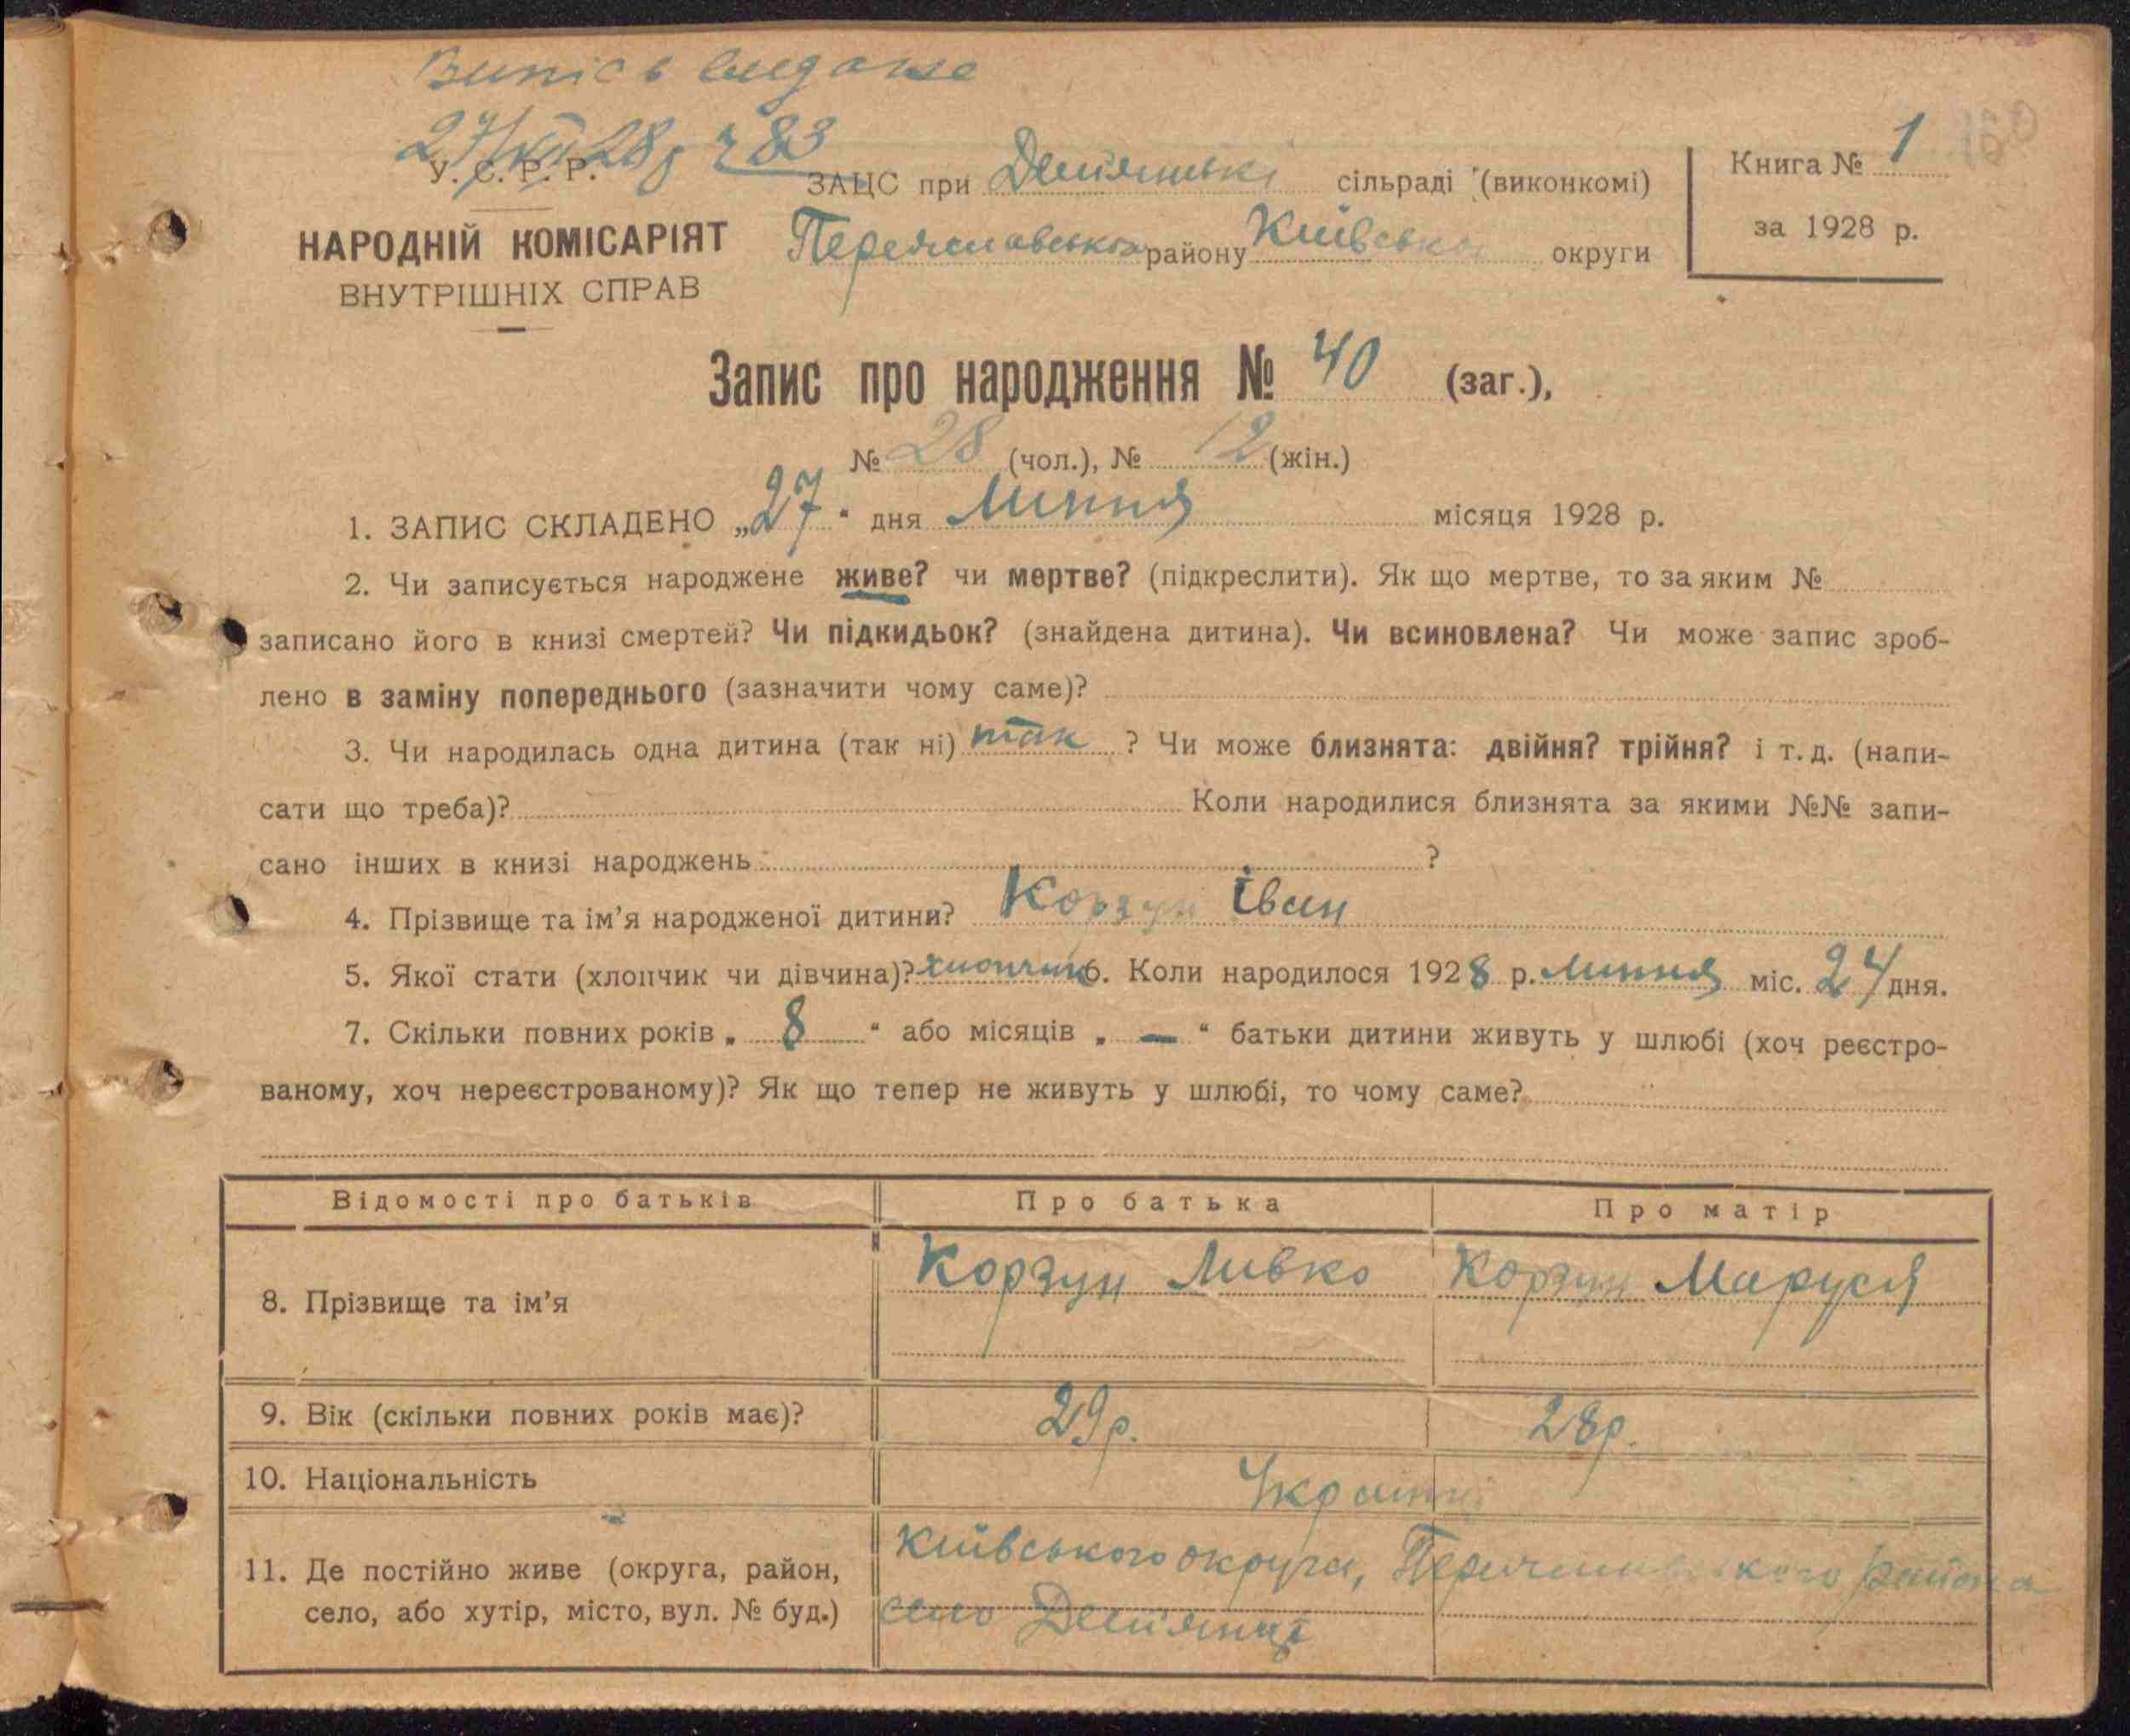 Випісь видана
27/VII 28р ч 83
У. С. Р. Р.
НАРОДНІЙ КОМІСАРІЯТ
ВНУТРІШНІХ СПРАВ
ЗАЦС при Дем'янські сільраді (виконкомі)
Переяславського району Київської округи
Книга № 1
за 1928 р.
Запис про народження № 40 (заг.),
№ 28 (чол.), № 12 (жін.)
1. ЗАПИС СКЛАДЕНО „27" дня Липня місяця 1928 р.
2. Чи записується народжене живе? чи мертве? (підкреслити). Як що мертве, то за яким №
записано його в книзі смертей? Чи підкидьок? (знайдена дитина). Чи всиновлена? Чи може запис зроб-
лено в заміну попереднього (зазначити чому саме)?
3. Чи народилась одна дитина (так ні) так ? Чи може близнята: двійня? трійня? і т. д. (напи-
сати що треба)? Коли народилися близнята за якими №№ запи-
сано інших в книзі народжень ?
4. Прізвище та ім'я народженої дитини? Корзун Іван
5. Якої стати (хлопчик чи дівчина)? хлопчик 6. Коли народилося 1928 р. липня міс. 24 дня.
7. Скільки повних років „ 8 " або місяців „ — " батьки дитини живуть у шлюбі (хоч реєстро-
ваному, хоч нереєстрованому)? Як що тепер не живуть у шлюбі, то чому саме?
Відомості про батьків Про батька Про матір
8. Прізвище та ім'я Корзун Ливко Корзун Маруся
9. Вік (скільки повних років має)? 29р. 28р.
10. Національність Україн
11. Де постійно живе (округа, район,
село, або хутір, місто, вул. № буд.)
Київського округа, Переяславського района
село Дем'янці